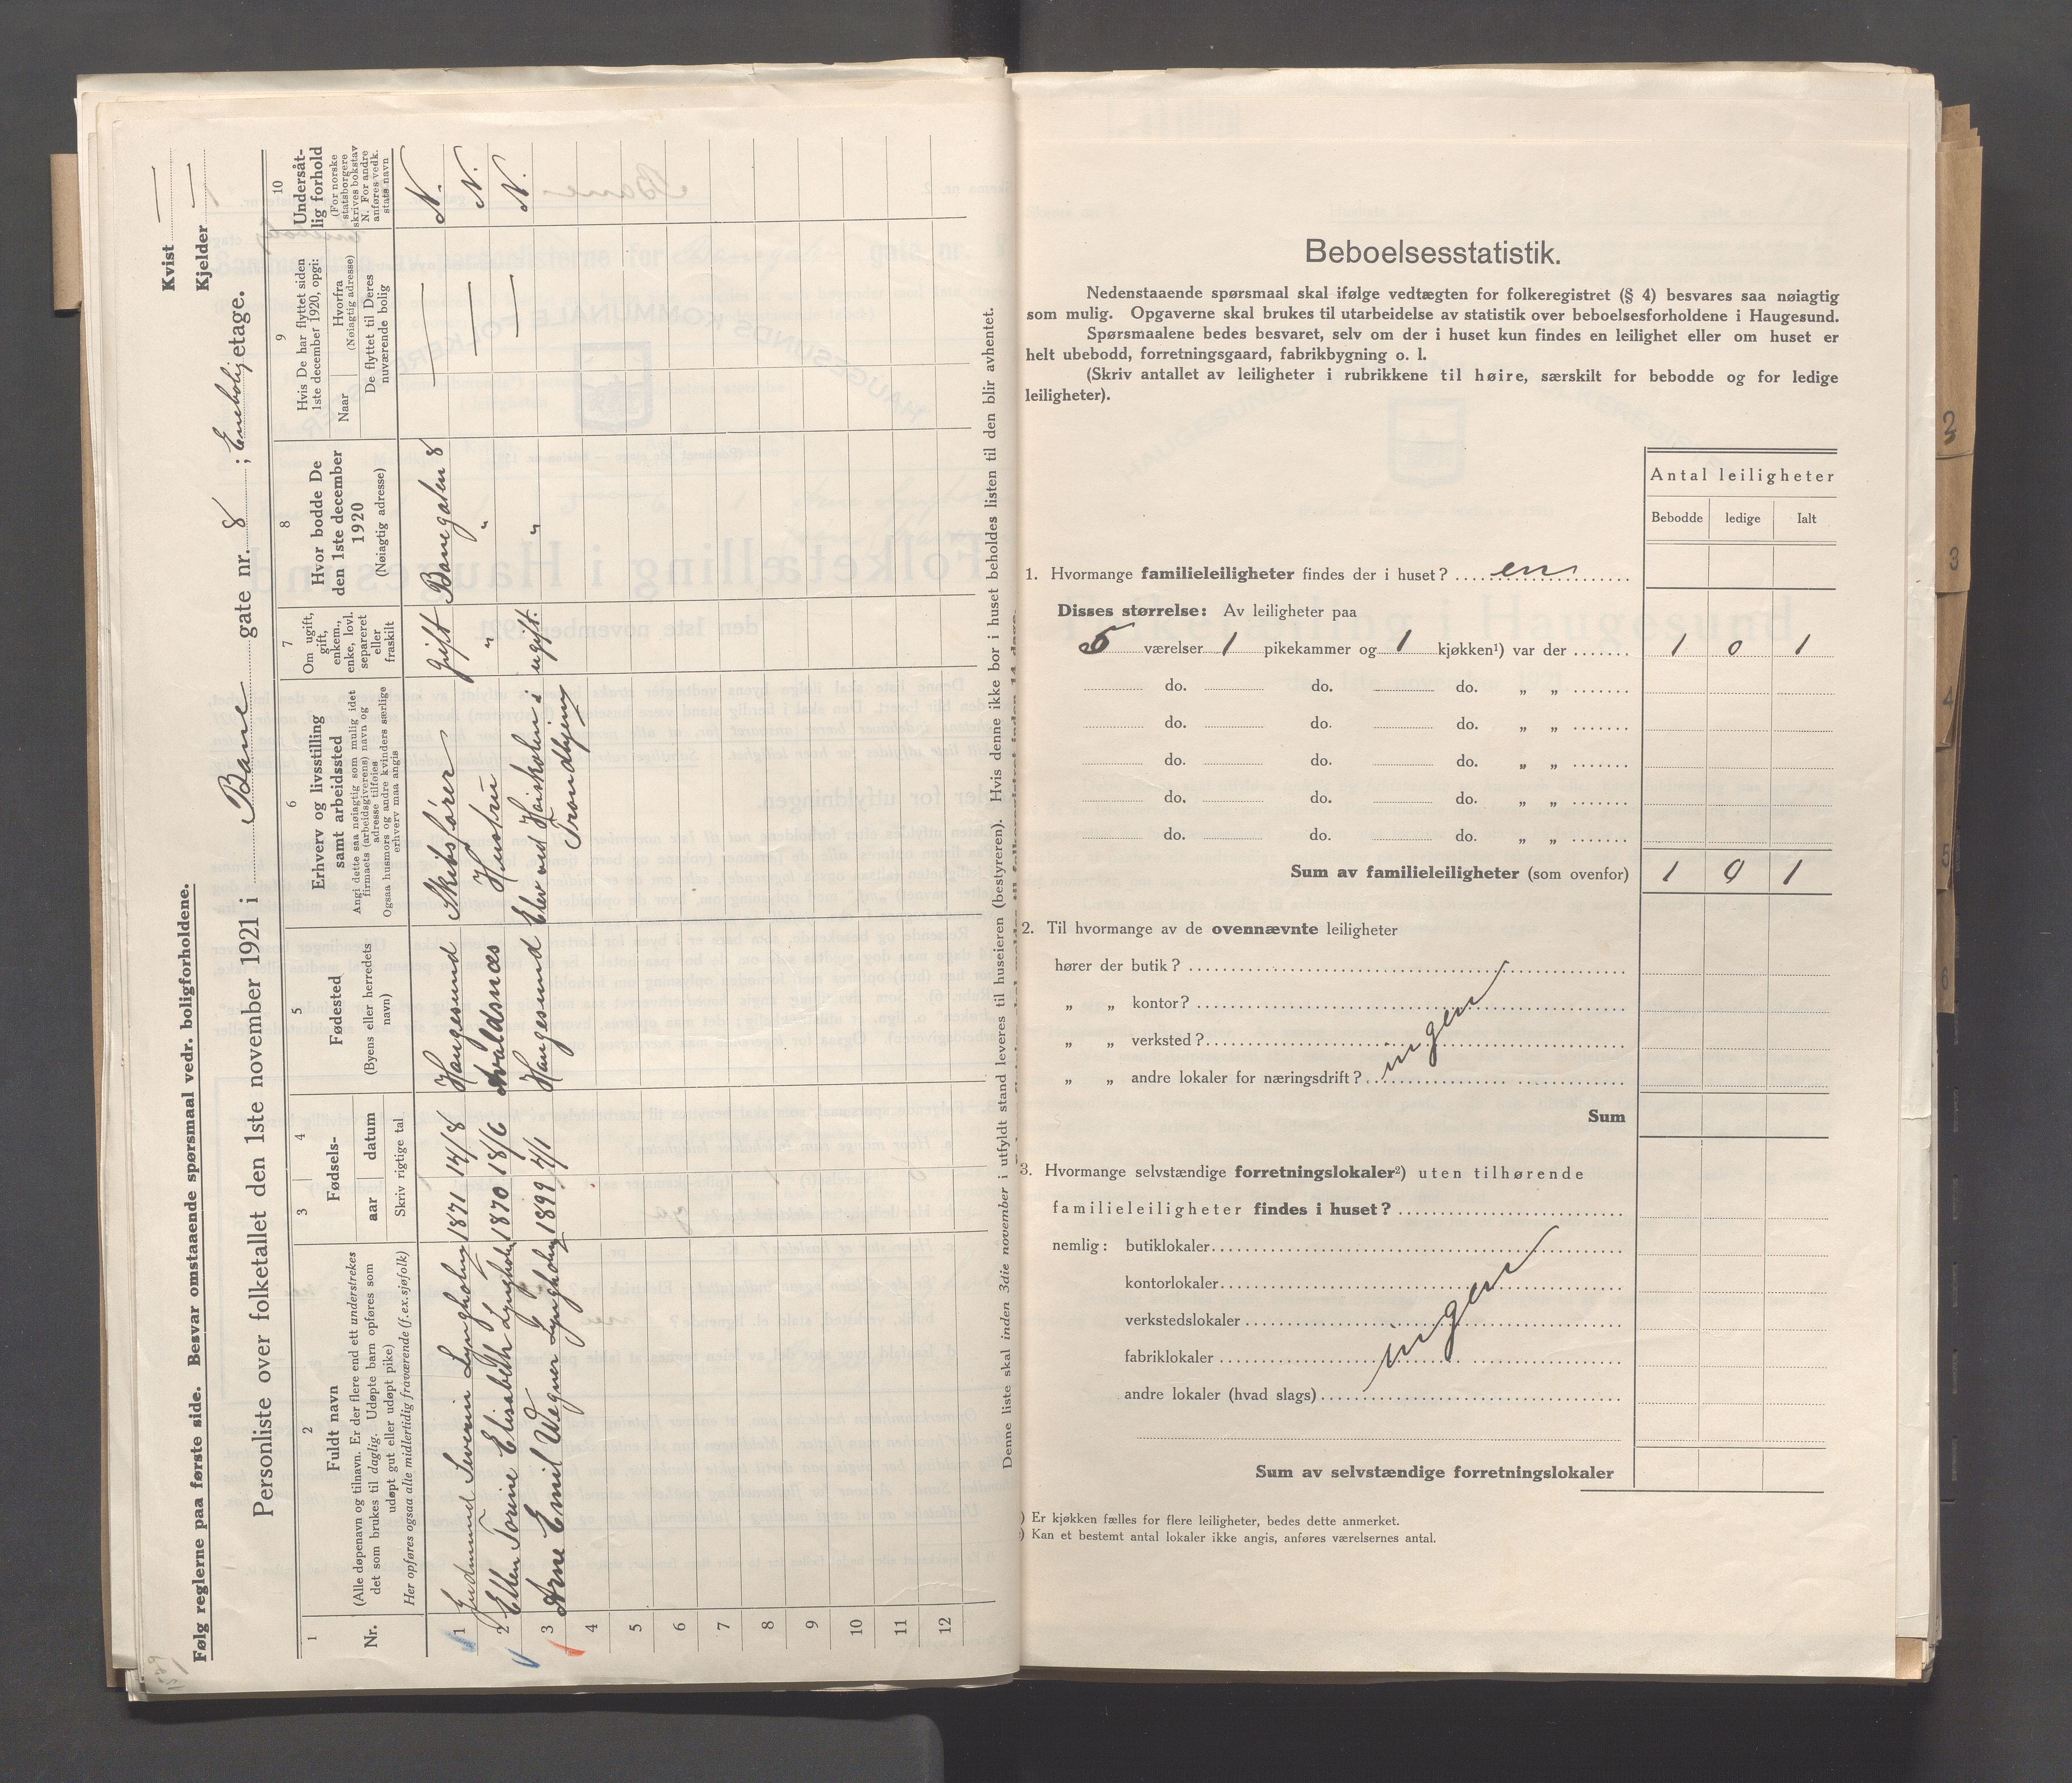 Følg reglerne paa første side. Besvar omstaaende spørsmaal vedr. boligforholdene.
Kvist —
Kjelder —
Personliste over folketallet den 1ste november 1921 i Bane gate nr. 8 ; Enebolig etage.
1
Nr.
2
Fuldt navn
(Alle døpenavn og tilnavn. Er der flere end ett understrekes
det som brukes til daglig. Udøpte barn opføres som
udøpt gut eller udøpt pike)
Her opføres ogsaa alle midlertidig fraværende (f. ex. sjøfolk)
3 4
Fødsels-
aar datum
Skriv rigtige tal
5
Fødested
(Byens eller herredets
navn)
6
Erhverv og livsstilling
samt arbeidssted
Angi dette saa nøiagtig som mulig idet
firmaets (arbeidsgiverens) navn og
adresse tilføies
Ogsaa husmors og andre kvinders særlige
erhverv maa angis
7
Om ugift,
gift,
enkem.,
enke, lovl.
separeret
eller
fraskilt
8
Hvor bodde De
den 1ste december
1920
(Nøiagtig adresse)
9
Hvis De har flyttet siden
1ste december 1920, opgi:
Naar
Hvorfra
(Nøiagtig adresse)
De flyttet til Deres
nuværende bolig
10
Undersåt-
lig forhold
(For norske
statsborgere
skrives bokstav
N. For andre
anføres vedk.
stats navn
1 Gudmund Severin Lyngholm 1871 14/8 Haugesund Skibsfører gift Banegaten 8 — N.
2 Ellen Torine Elisabeth Lyngholm 1870 18/6 Avaldsnes Hustru " " — N.
3 Arne Emil Wegner Lyngholm 1899 4/1 Haugesund Elev ved Høiskolen i ugift. " — N.
Trondhjem
4
5
6
7
8
9
10
11
12
Denne liste skal inden 3die november i utfyldt stand leveres til huseieren (bestyreren). Hvis denne ikke bor i huset beholdes listen til den blir avhentet.
Beboelsesstatistik.
Nedenstaaende spørsmaal skal ifølge vedtægten for folkeregistret (§ 4) besvares saa nøiagtig
som mulig. Opgaverne skal brukes til utarbeidelse av statistik over beboelsesforholdene i Haugesund.
Spørsmaalene bedes besvaret, selv om der i huset kun findes en leilighet eller om huset er
helt ubebodd, forretningsgaard, fabrikbygning o. l.
(Skriv antallet av leiligheter i rubrikkene til høire, særskilt for bebodde og for ledige
leiligheter).
Antal leiligheter
Bebodde ledige Ialt
1. Hvormange familieleiligheter findes der i huset? en
Disses størrelse: Av leiligheter paa
5 værelser 1 pikekammer og 1 kjøkken¹) var der 1 0 1
do. do. do. „ „
do. do. do. „ „
do. do. do. „ „
do. do. do. „ „
do. do. do. „ „
Sum av familieleiligheter (som ovenfor) 1 0 1
2. Til hvormange av de ovennævnte leiligheter
hører der butik?
„ „ kontor?
„ „ verksted?
„ „ andre lokaler for næringsdrift?
ingen
Sum
3. Hvormange selvstændige forretningslokaler²) uten tilhørende
familieleiligheter findes i huset?
nemlig: butiklokaler
kontorlokaler
verkstedslokaler
fabriklokaler
andre lokaler (hvad slags)
ingen
Sum av selvstændige forretningslokaler
) Er kjøkken fælles for flere leiligheter, bedes dette anmerket.
) Kan et bestemt antal lokaler ikke angis, anføres værelsernes antal.
2
3
4
5
6